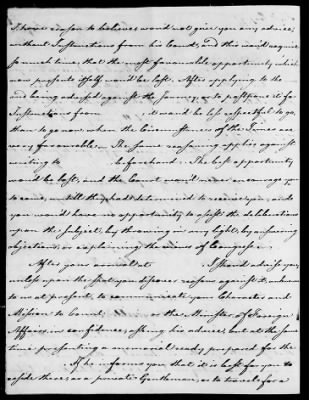 I have reason to believe would not give you any advice,
without Instructions from his Court, and this would require
so much time, that the most favourable opportunity which
now presents itself would be lost. After applying to the
and being advised against the Journey, or to postpone it for
Instructions from it would be less respectful to go,
than to go now when the Circumstances of the Times are
very favourable. The same reasoning applies against
writing to beforehand. The best opportunity
would be lost, and the Court would never encourage you
to come, untill they had determined to receive you, and
you would have no opportunity to assist the deliberations
upon the subject, by throwing in any light, by answering
objections, or explaining the views of Congress.
After your arrival at I should advise you,
unless upon the spot you discover reasons against it, unknown
to us at present, to communicate your Character and
Mission to Count or the Minister of Foreign
Affairs, in confidence, asking his advice, but at the same
time presenting a memorial ready prepared for the
If he informs you, that it is best for you to
reside there, as a private Gentleman, or to travel for a